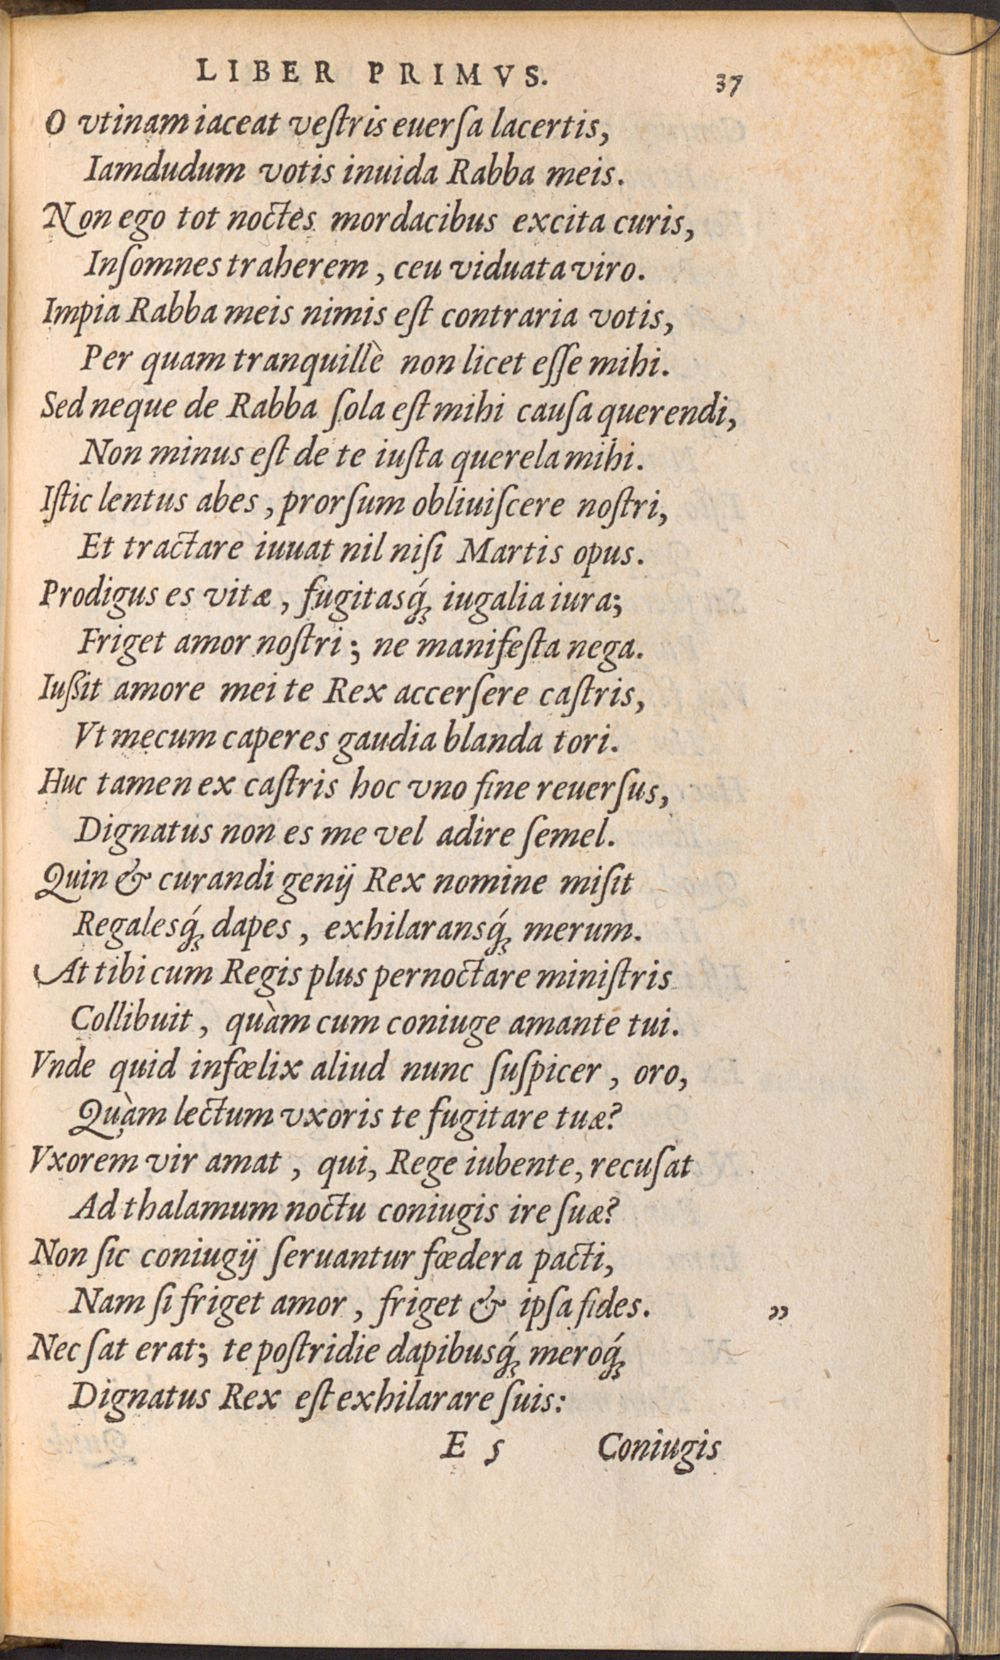 LIBER PRIMVS. 37
O vtinam iaceat veſtris euerſa lacertis,
Iamdudum votis inuida Rabba meis.
Non ego tot noctes mordacibus excita curis,
Inſomnes traherem, ceu viduata viro.
Impia Rabba meis nimis eſt contraria votis,
Per quam tranquillè non licet eſſe mihi.
Sed neque de Rabba ſola eſt mihi cauſa querendi,
Non minus eſt de te iuſta querela mihi.
Iſtic lentus abes, prorſum obliuiſcere noſtri,
Et tractare iuuat nil niſi Martis opus.
Prodigus es vitæ, fugitasq́; iugalia iura;
Friget amor noſtri; ne manifeſta nega.
Iuſsit amore mei te Rex accerſere caſtris,
Vt mecum caperes gaudia blanda tori.
Huc tamen ex caſtris hoc vno fine reuerſus,
Dignatus non es me vel adire ſemel.
Quin & curandi genij Rex nomine miſit
Regalesq́; dapes, exhilaransq́; merum.
At tibi cum Regis plus pernoctare miniſtris
Collibuit, quàm cum coniuge amante tui.
Vnde quid infœlix aliud nunc ſuſpicer, oro,
Quàm lectum vxoris te fugitare tuæ?
Vxorem vir amat, qui, Rege iubente, recuſat
Ad thalamum noctu coniugis ire ſuæ?
Non ſic coniugij ſeruantur fœdera pacti,
Nam ſi friget amor, friget & ipſa fides. ”
Nec ſat erat; te poſtridie dapibusq́; meroq́;
Dignatus Rex eſt exhilarare ſuis:
E 5 Coniugis